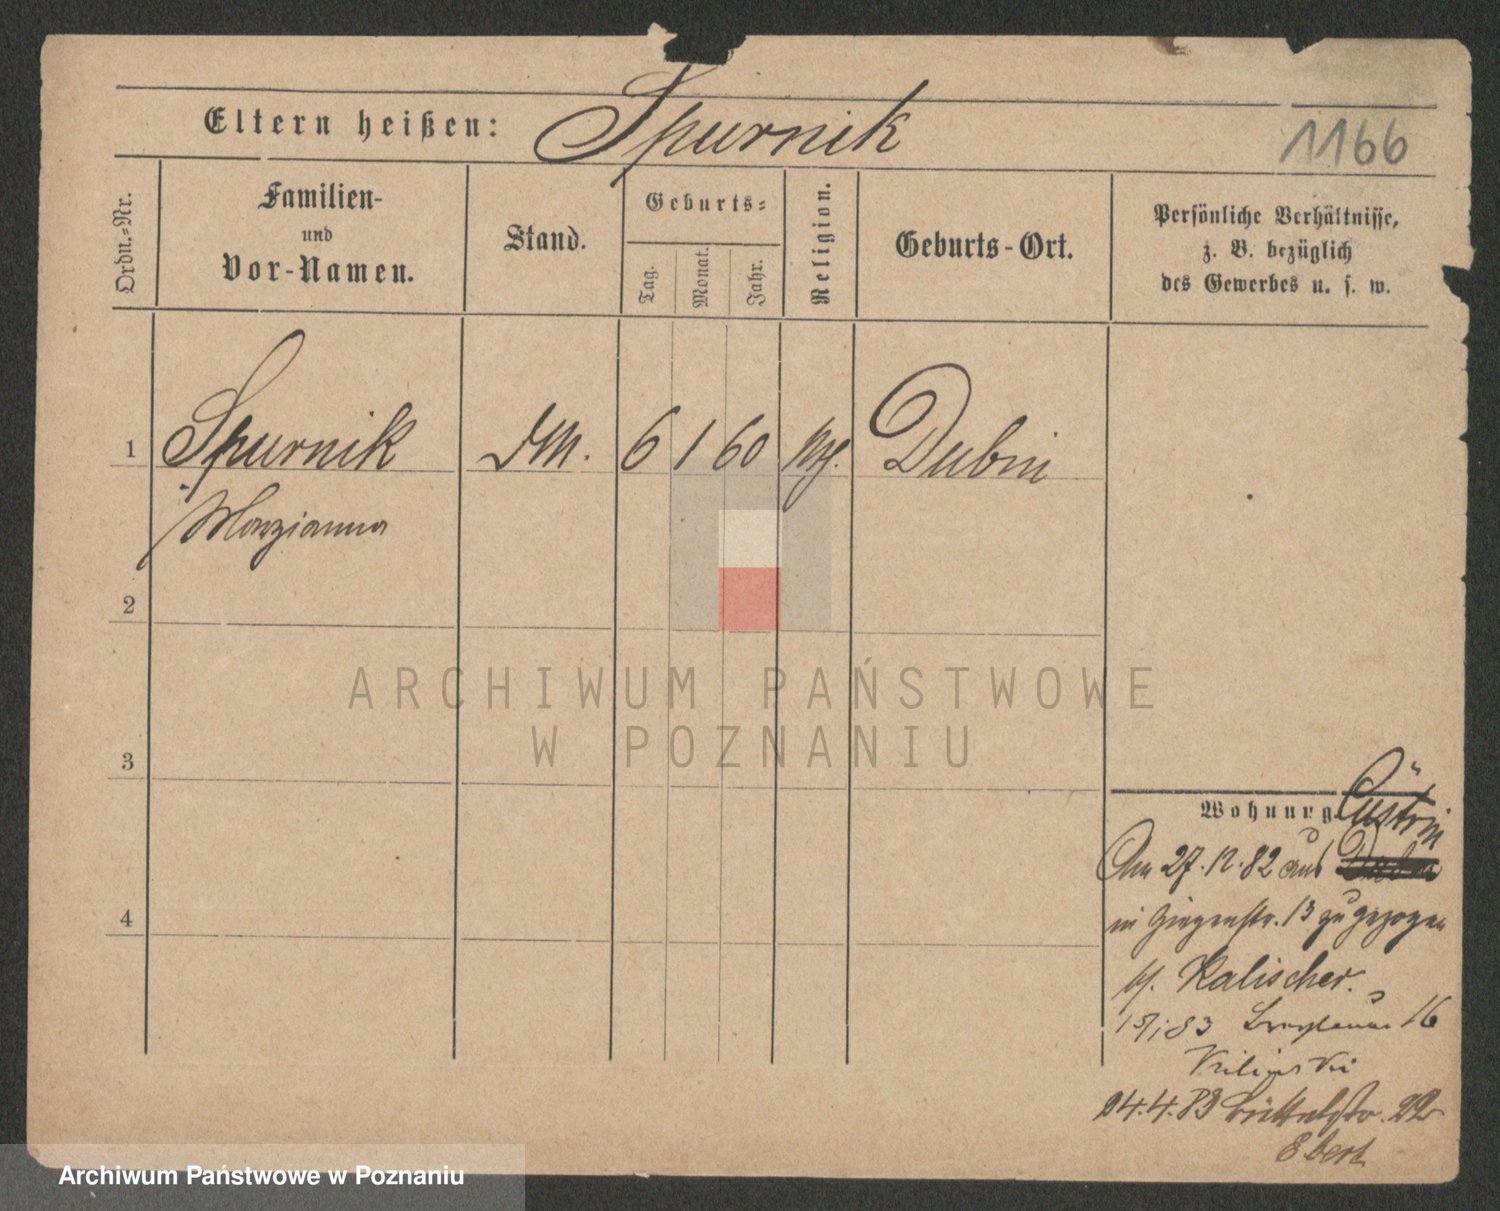 Eltern heißen: Spurnik
1166
Ordn.=Nr.
Familien-
und
Vor-Namen.
Stand.
Geburts=
Tag.
Monat.
Jahr.
Religion.
Geburts-Ort.
Persönliche Verhältnisse,
z. B. bezüglich
des Gewerbes u. s. w.
1 Spurnik 6 1 60 Dubin
Maryianna
2
3
4
ARCHIWUM PAŃSTWOWE
W POZNANIU
Wohnung Cüstrin
Am 27.12.82 aus
in 13 zugezogen
b/. Kalischer.
15/1 83 16
Kilinski
24.4.83 Büttelstr. 22
Ebert
Archiwum Państwowe w Poznaniu